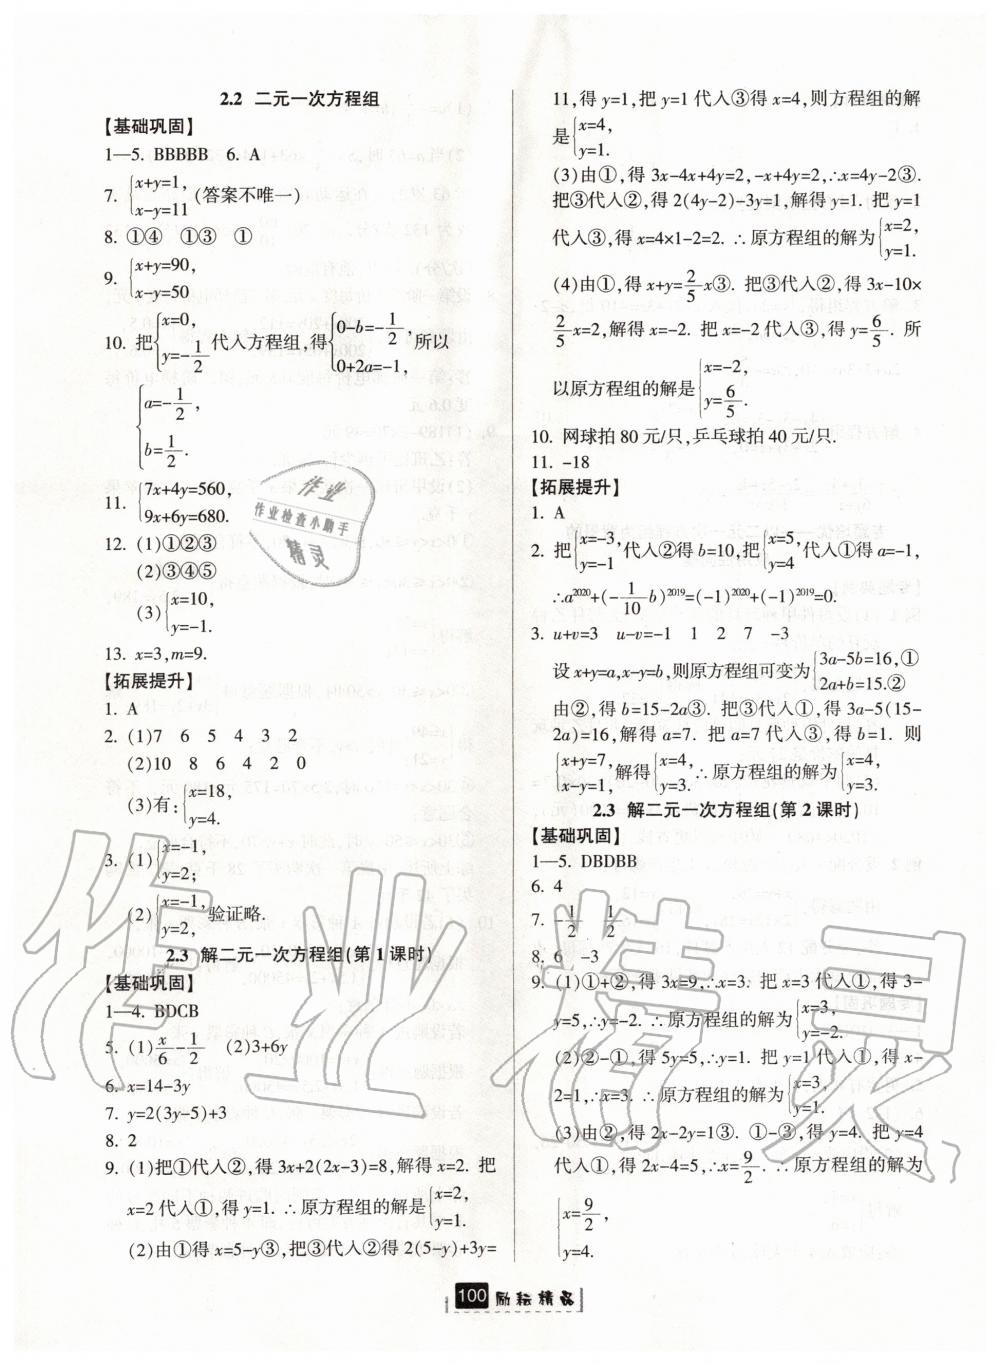 2.2 二元一次方程组
【基础巩固】
1—5. BBBBB 6. A
7. {x+y=1, x-y=11 (答案不唯一)
8. ①④ ①③ ①
9. {x+y=90, x-y=50
10. 把{x=0, y=-1/2 代入方程组,得{0-b=-1/2, 0+2a=-1, 所以
{a=-1/2, b=1/2.
11. {7x+4y=560, 9x+6y=680.
12. (1)①②③
(2)③④⑤
(3){x=10, y=-1.
13. x=3,m=9.
【拓展提升】
1. A
2. (1)7 6 5 4 3 2
(2)10 8 6 4 2 0
(3)有:{x=18, y=4.
3. (1){x=-1, y=2;
(2){x=-1, y=2, 验证略.
2.3 解二元一次方程组(第1课时)
【基础巩固】
1—4. BDCB
5. (1)x/6-1/2 (2)3+6y
6. x=14-3y
7. y=2(3y-5)+3
8. 2
9. (1)把①代入②,得3x+2(2x-3)=8,解得x=2. 把
x=2代入①,得y=1. ∴原方程组的解是{x=2, y=1.
(2)由①得x=5-y③,把③代入②得2(5-y)+3y=
11,得y=1,把y=1代入③得x=4,则方程组的解
是{x=4, y=1.
(3)由①,得3x-4x+4y=2,-x+4y=2,∴x=4y-2③.
把③代入②,得2(4y-2)-3y=1,解得y=1. 把y=1
代入③,得x=4×1-2=2. ∴原方程组的解为{x=2, y=1.
(4)由①,得x+y=2/5x③. 把③代入②,得3x-10×
2/5x=2,解得x=-2. 把x=-2代入③,得y=6/5. 所
以原方程组的解是{x=-2, y=6/5.
10. 网球拍80元/只,乒乓球拍40元/只.
11. -18
【拓展提升】
1. A
2. 把{x=-3, y=-1 代入②得b=10,把{x=5, y=4 代入①得a=-1,
∴a²⁰²⁰+(-1/10b)²⁰¹⁹=(-1)²⁰²⁰+(-1)²⁰¹⁹=0.
3. u+v=3 u-v=-1 1 2 7 -3
设x+y=a,x-y=b,则原方程组可变为{3a-5b=16,① 2a+b=15.②
由②,得b=15-2a③. 把③代入①,得3a-5(15-
2a)=16,解得a=7. 把a=7代入③,得b=1. 则
{x+y=7, x-y=1, 解得{x=4, y=3. ∴原方程组的解为{x=4, y=3.
2.3 解二元一次方程组(第2课时)
【基础巩固】
1—5. DBDBB
6. 4
7. -1/2 1/2
8. 6 -3
9. (1)①+②,得3x=9,∴x=3. 把x=3代入①,得3-
y=5,∴y=-2. ∴原方程组的解为{x=3, y=-2.
(2)②-①,得5y=5,∴y=1. 把y=1代入①,得x-
2=1,∴x=3. ∴原方程组的解为{x=3, y=1.
(3)由②,得2x-2y=1③. ①-③,得y=4. 把y=4
代入①,得2x-4=5,∴x=9/2. ∴原方程组的解为
{x=9/2, y=4.
100 励耘精品
作业
作业检查小助手
精灵
作业精灵